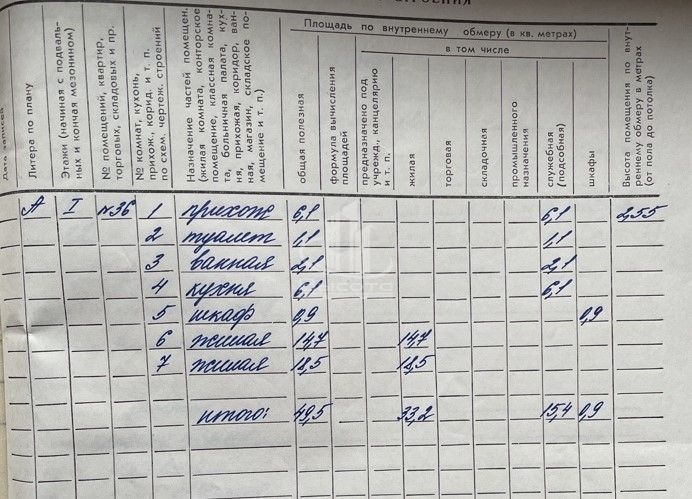 СТРОЕНИЯ
Литера по плану
Этажи (начиная с подваль-
ных и кончая мезонином)
№ помещений, квартир,
торговых, складовых и пр.
№ комнат, кухонь,
прихож., корид. и т. п.
по схем. чертеж. строений
Назначение частей помещен.
(жилая комната, конторское
помещение, классная комна-
та, больничная палата, кух-
ня, прихожая, коридор, ван-
ная, магазин, складское по-
мещение и т. п.)
Площадь по внутреннему обмеру (в кв. метрах)
общая полезная
формула вычисления
площадей
в том числе
предназначено под
учрежд., канцелярию
и т. п.
жилая
торговая
складочная
промышленного
назначения
служебная
(подсобная)
шкафы
Высота помещения по внут-
реннему обмеру в метрах
(от пола до потолка)
А I №36 1 прихож 6,1 6,1 2,55
2 туалет 1,1 1,1
3 ванная 2,1 2,1
4 кухня 6,1 6,1
5 шкаф 0,9 0,9
6 жилая 14,7 14,7
7 жилая 18,5 18,5
итого: 49,5 33,2 15,4 0,9